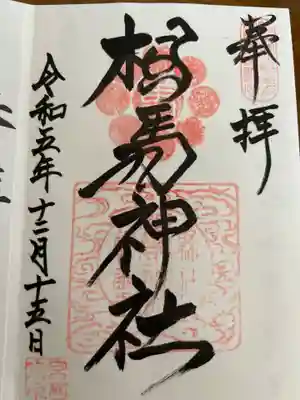 奉拝
相馬神社
令和五年十二月十五日